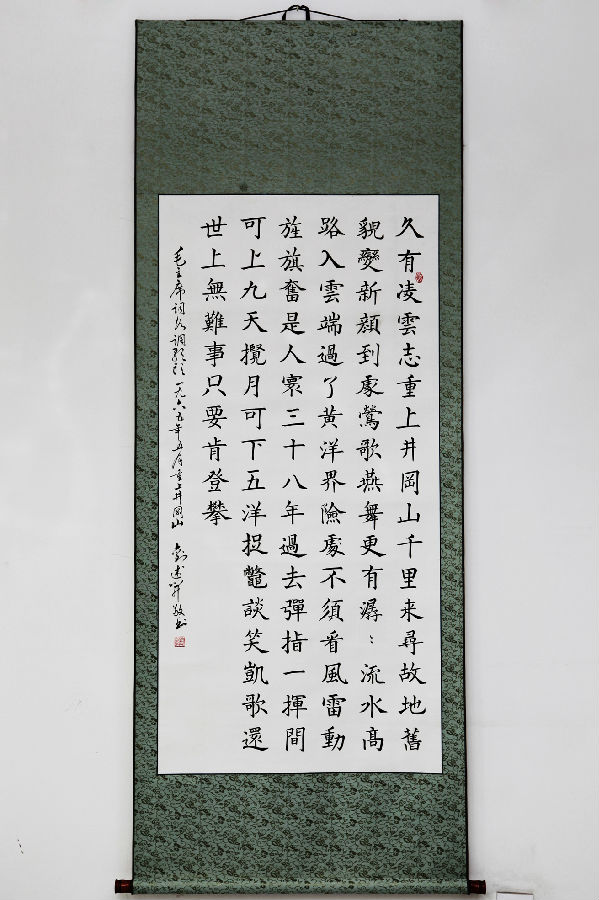 久有凌雲志重上井岡山千里来尋故地舊
貌變新顔到處鶯歌燕舞更有潺〻流水高
路入雲端過了黄洋界險處不須看風雷動
旌旗奮是人寰三十八年過去彈指一揮間
可上九天攬月可下五洋捉鼈談笑凱歌還
世上無難事只要肯登攀
毛主席詞水調歌頭一九六五年五月重上井岡山 劉述